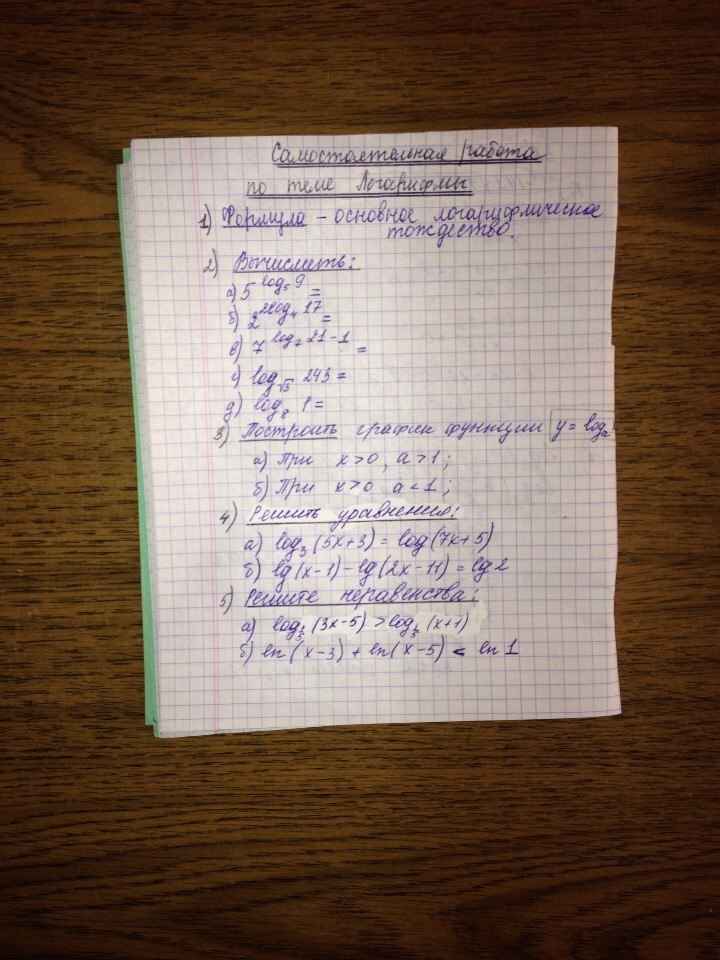 Самостоятельная работа
по теме Логарифмы
1) Формула – основное логарифмическое
тождество.
2) Вычислить:
а) 5^log₅9 =
б) 2^2log₄17 =
в) 7^log₇21-1 =
г) log_√3 243 =
д) log₈ 1 =
3) Построить график функции y = logₐ
а) При x>0, a>1;
б) При x>0 a<1;
4) Решить уравнения:
а) log₃(5x+3) = log(7x+5)
б) lg(x-1)-lg(2x-11) = lg2
5) Решите неравенства:
а) log_1/3 (3x-5) > log_1/3 (x+1)
б) ln(x-3) + ln(x-5) < ln 1